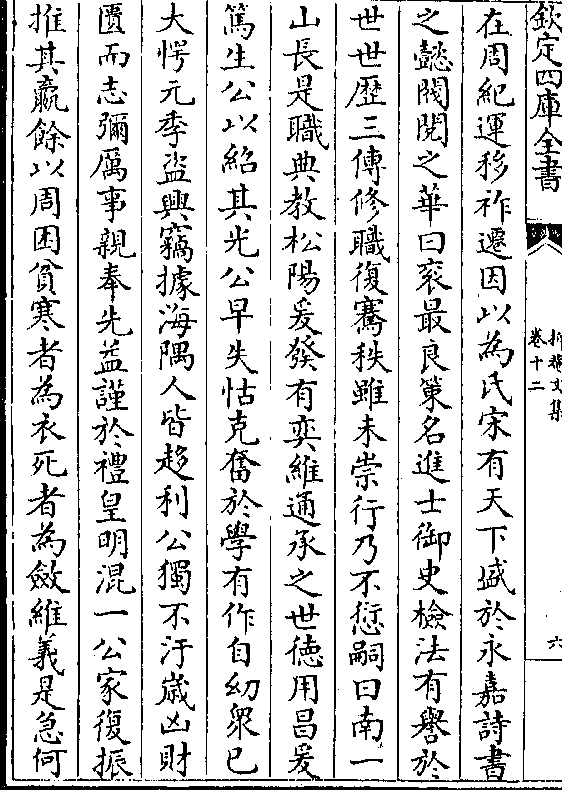 欽定四庫全書
卷十二
六
在周紀運移祚遷因以為氏宋有天下盛於永嘉詩書
之懿閥閱之華曰衮最良策名進士御史檢法有譽於
世世歴三傳修職復騫秩雖未崇行乃不愆嗣曰南一
山長是職典教松陽爰發有奕維通承之世德用昌爰
篤生公以紹其光公早失怙克奮於學有作自幼衆已
大愕元季盜興竊據海隅人皆趍利公獨不汙嵗凶財
匱而志彌厲事親奉先益謹於禮皇明混一公家復振
推其羸餘以周困貧寒者為衣死者為斂維義是急何